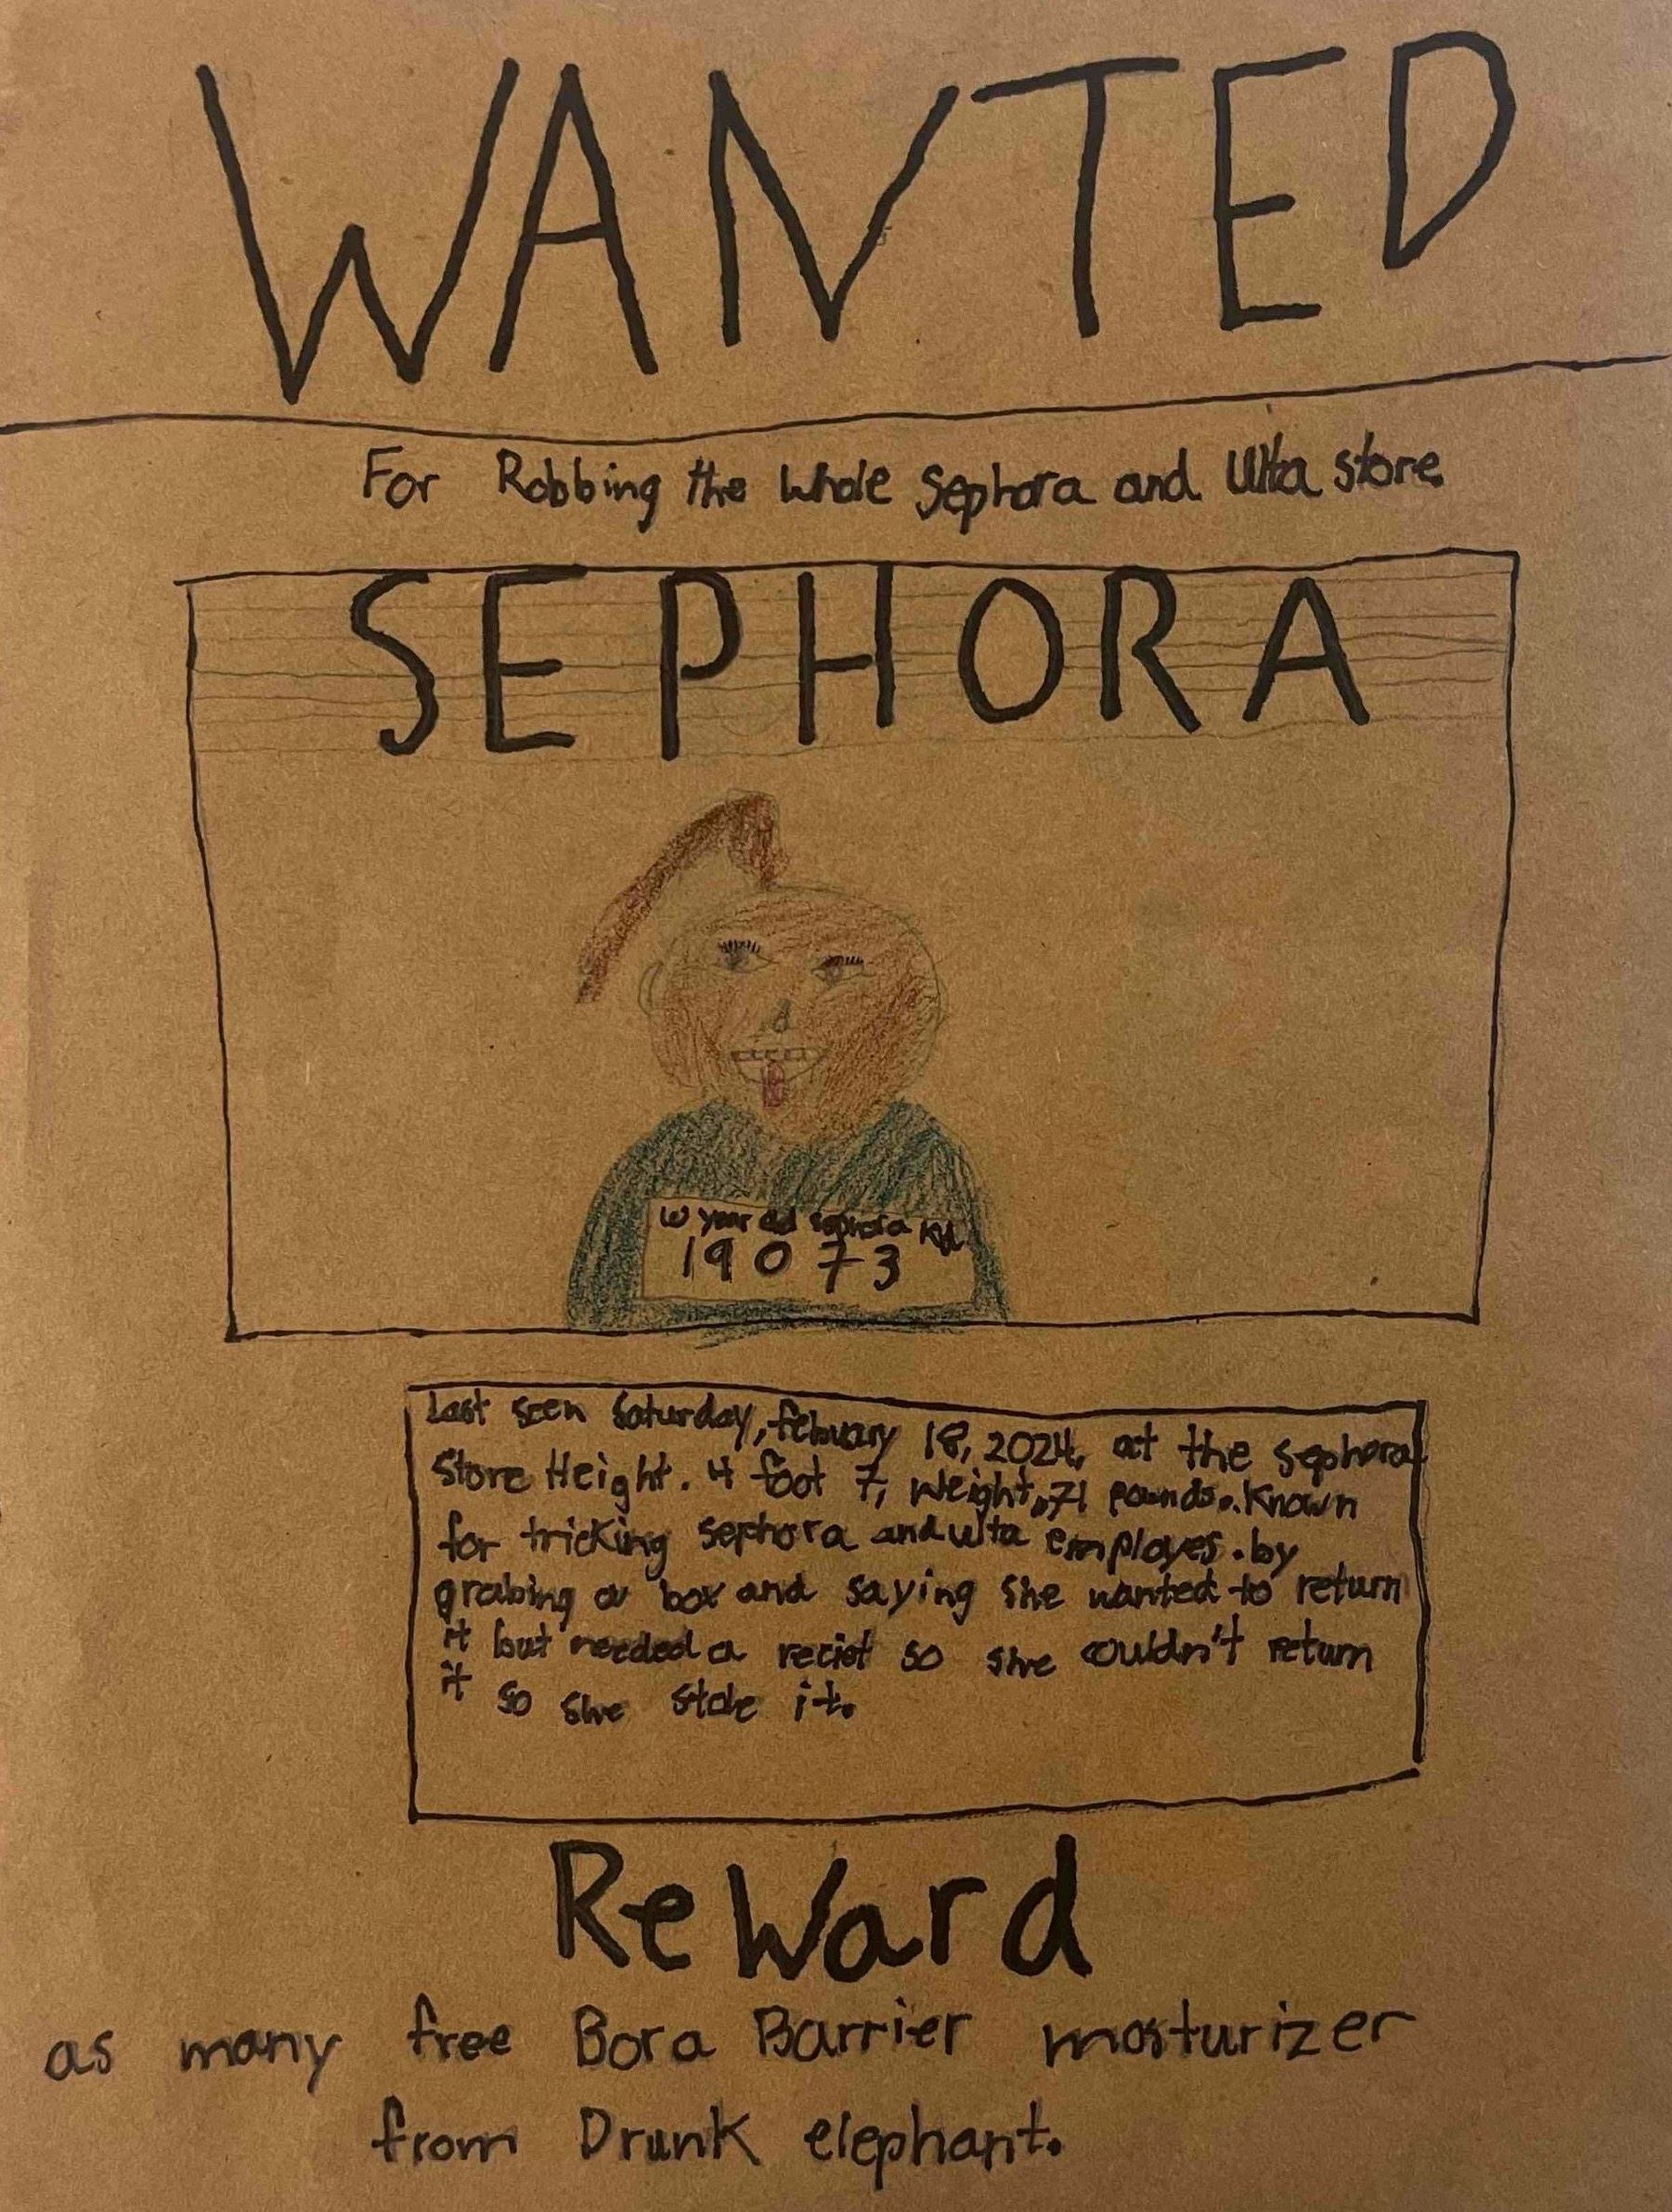 WANTED
For Robbing the whole Sephora and Ulta store.
SEPHORA
10 year old sephora kid
19073
Last seen Saturday, febuary 18, 2024, at the sephora
Store Height. 4 foot 7, weight, 71 pounds. Known
for tricking sephora and ulta employes. by
grabing a box and saying she wanted to return
it but needed a reciet so she couldn't return
it so she stole it.
Reward
as many free Bora Barrier mosturizer
from Drunk elephant.